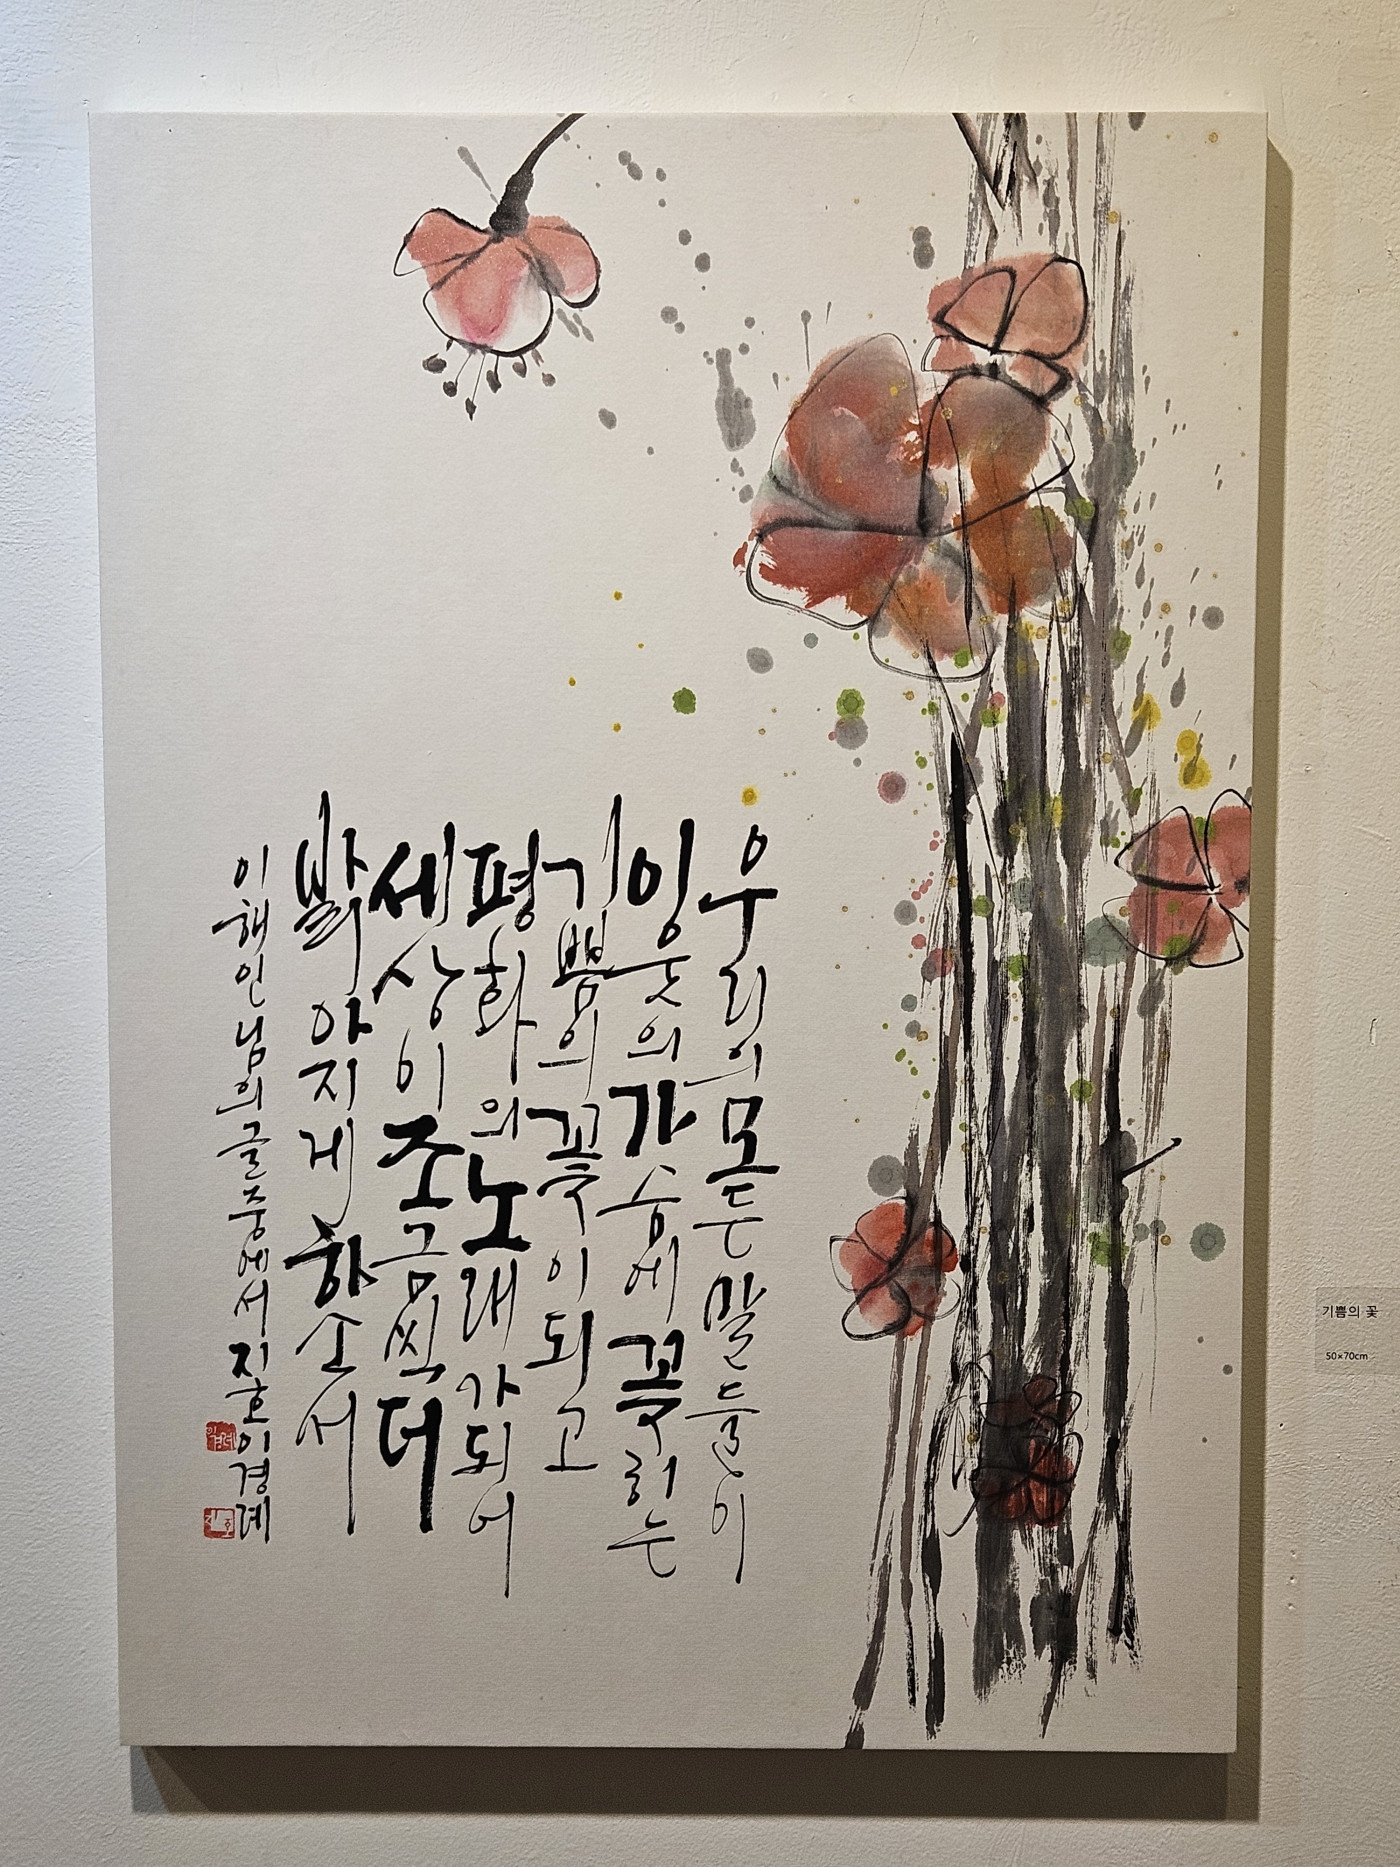 우리의 모든 말들이
이웃의 가슴에 꽂히는
기쁨의 꽃이 되고
평화의 노래가 되어
세상이 조금씩 더
밝아지게 하소서
이해인님의 글 중에서 지호 이경례
이경례
지호
기쁨의 꽃
50×70cm